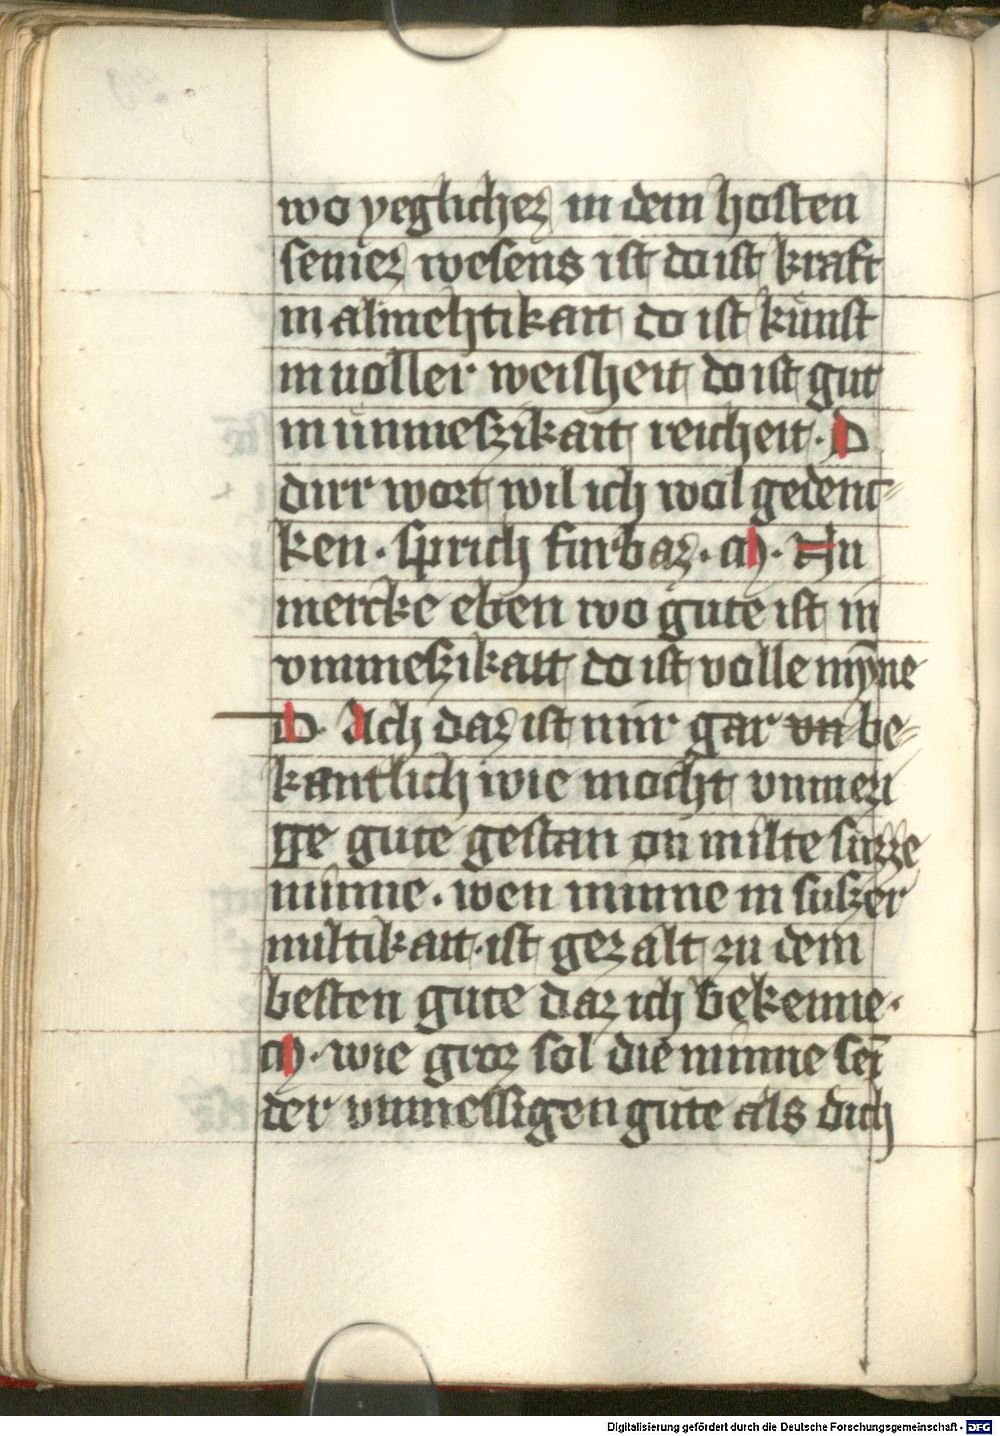 wo yeglichez in dem hosten
seniez wesens ist do ist kraft
in almehtikait do ist kunst
in uoller weisheit do ist gut
in unmeszikait reicheit · D
dirr wort wil ich wol gedenc⸗
ken · sprich furbaz · M · Nu
mercke eben wo gute ist in
vnmeszikait do ist volle mȳne
D · Ach daz ist mir gar vn be⸗
kantlich wie mocht vnmezi
ge gute gestan on milte suzze
minne · wen minne in suszer
miltikait · ist gezalt zu dem
besten gute daz ich bekenne ·
M · wie groz sol die minne sei
der vnmessigen gute als dich
Digitalisierung gefördert durch die Deutsche Forschungsgemeinschaft - DFG